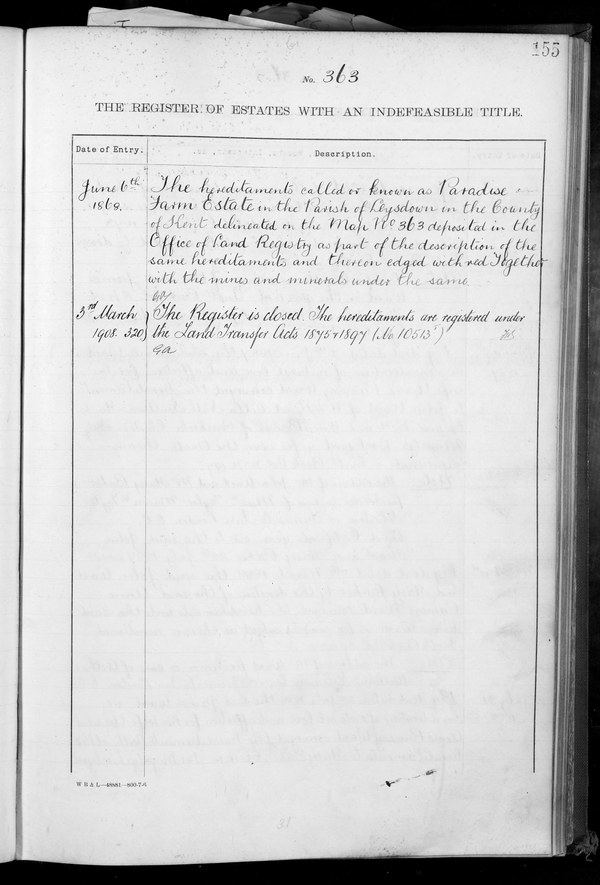 155
No. 363
THE REGISTER OF ESTATES WITH AN INDEFEASIBLE TITLE.
Date of Entry.
Description.
June 6th 1868.
The hereditaments called or known as Paradise
Farm Estate in the Parish of Leysdown in the County
of Kent delineated on the Map No 363 deposited in the
Office of Land Registry as part of the description of the
same hereditaments and thereon edged with red Together
with the mines and minerals under the same
3rd March 1908. 320
The Register is closed. The hereditaments are registered under
the Land Transfer Acts 1875 & 1897 (No. 10513)
W B & L—48881—800-7-6